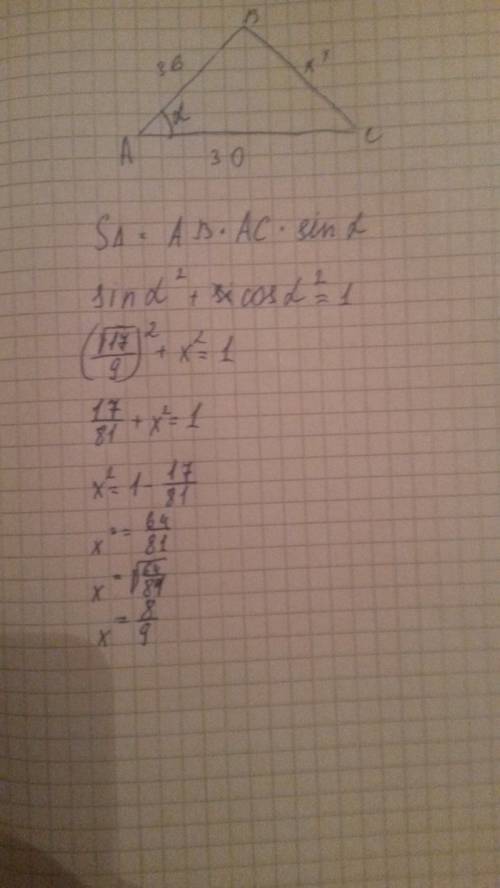 B
36
x?
α
A
30
C
S∆ = AB · AC · sin α
sin α² + cos α² = 1
(√17/9)² + x² = 1
17/81 + x² = 1
x² = 1 - 17/81
x² = 64/81
x = √64/81
x = 8/9